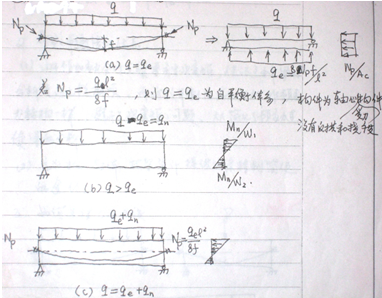 q
q
Np
Np
f
⇒
(a) q=qe
qe=8Npf/l²
Np/Ac
若 Np=qel²/8f, 则 q=qe 为自平衡体系, 构件为轴心受力构件
没有反拱和挠度
q-qe=qn
Mn/W1
Mn/W2.
(b) q>qe
qe+qn
Np
Np=qel²/8f
(c) q=qe+qn